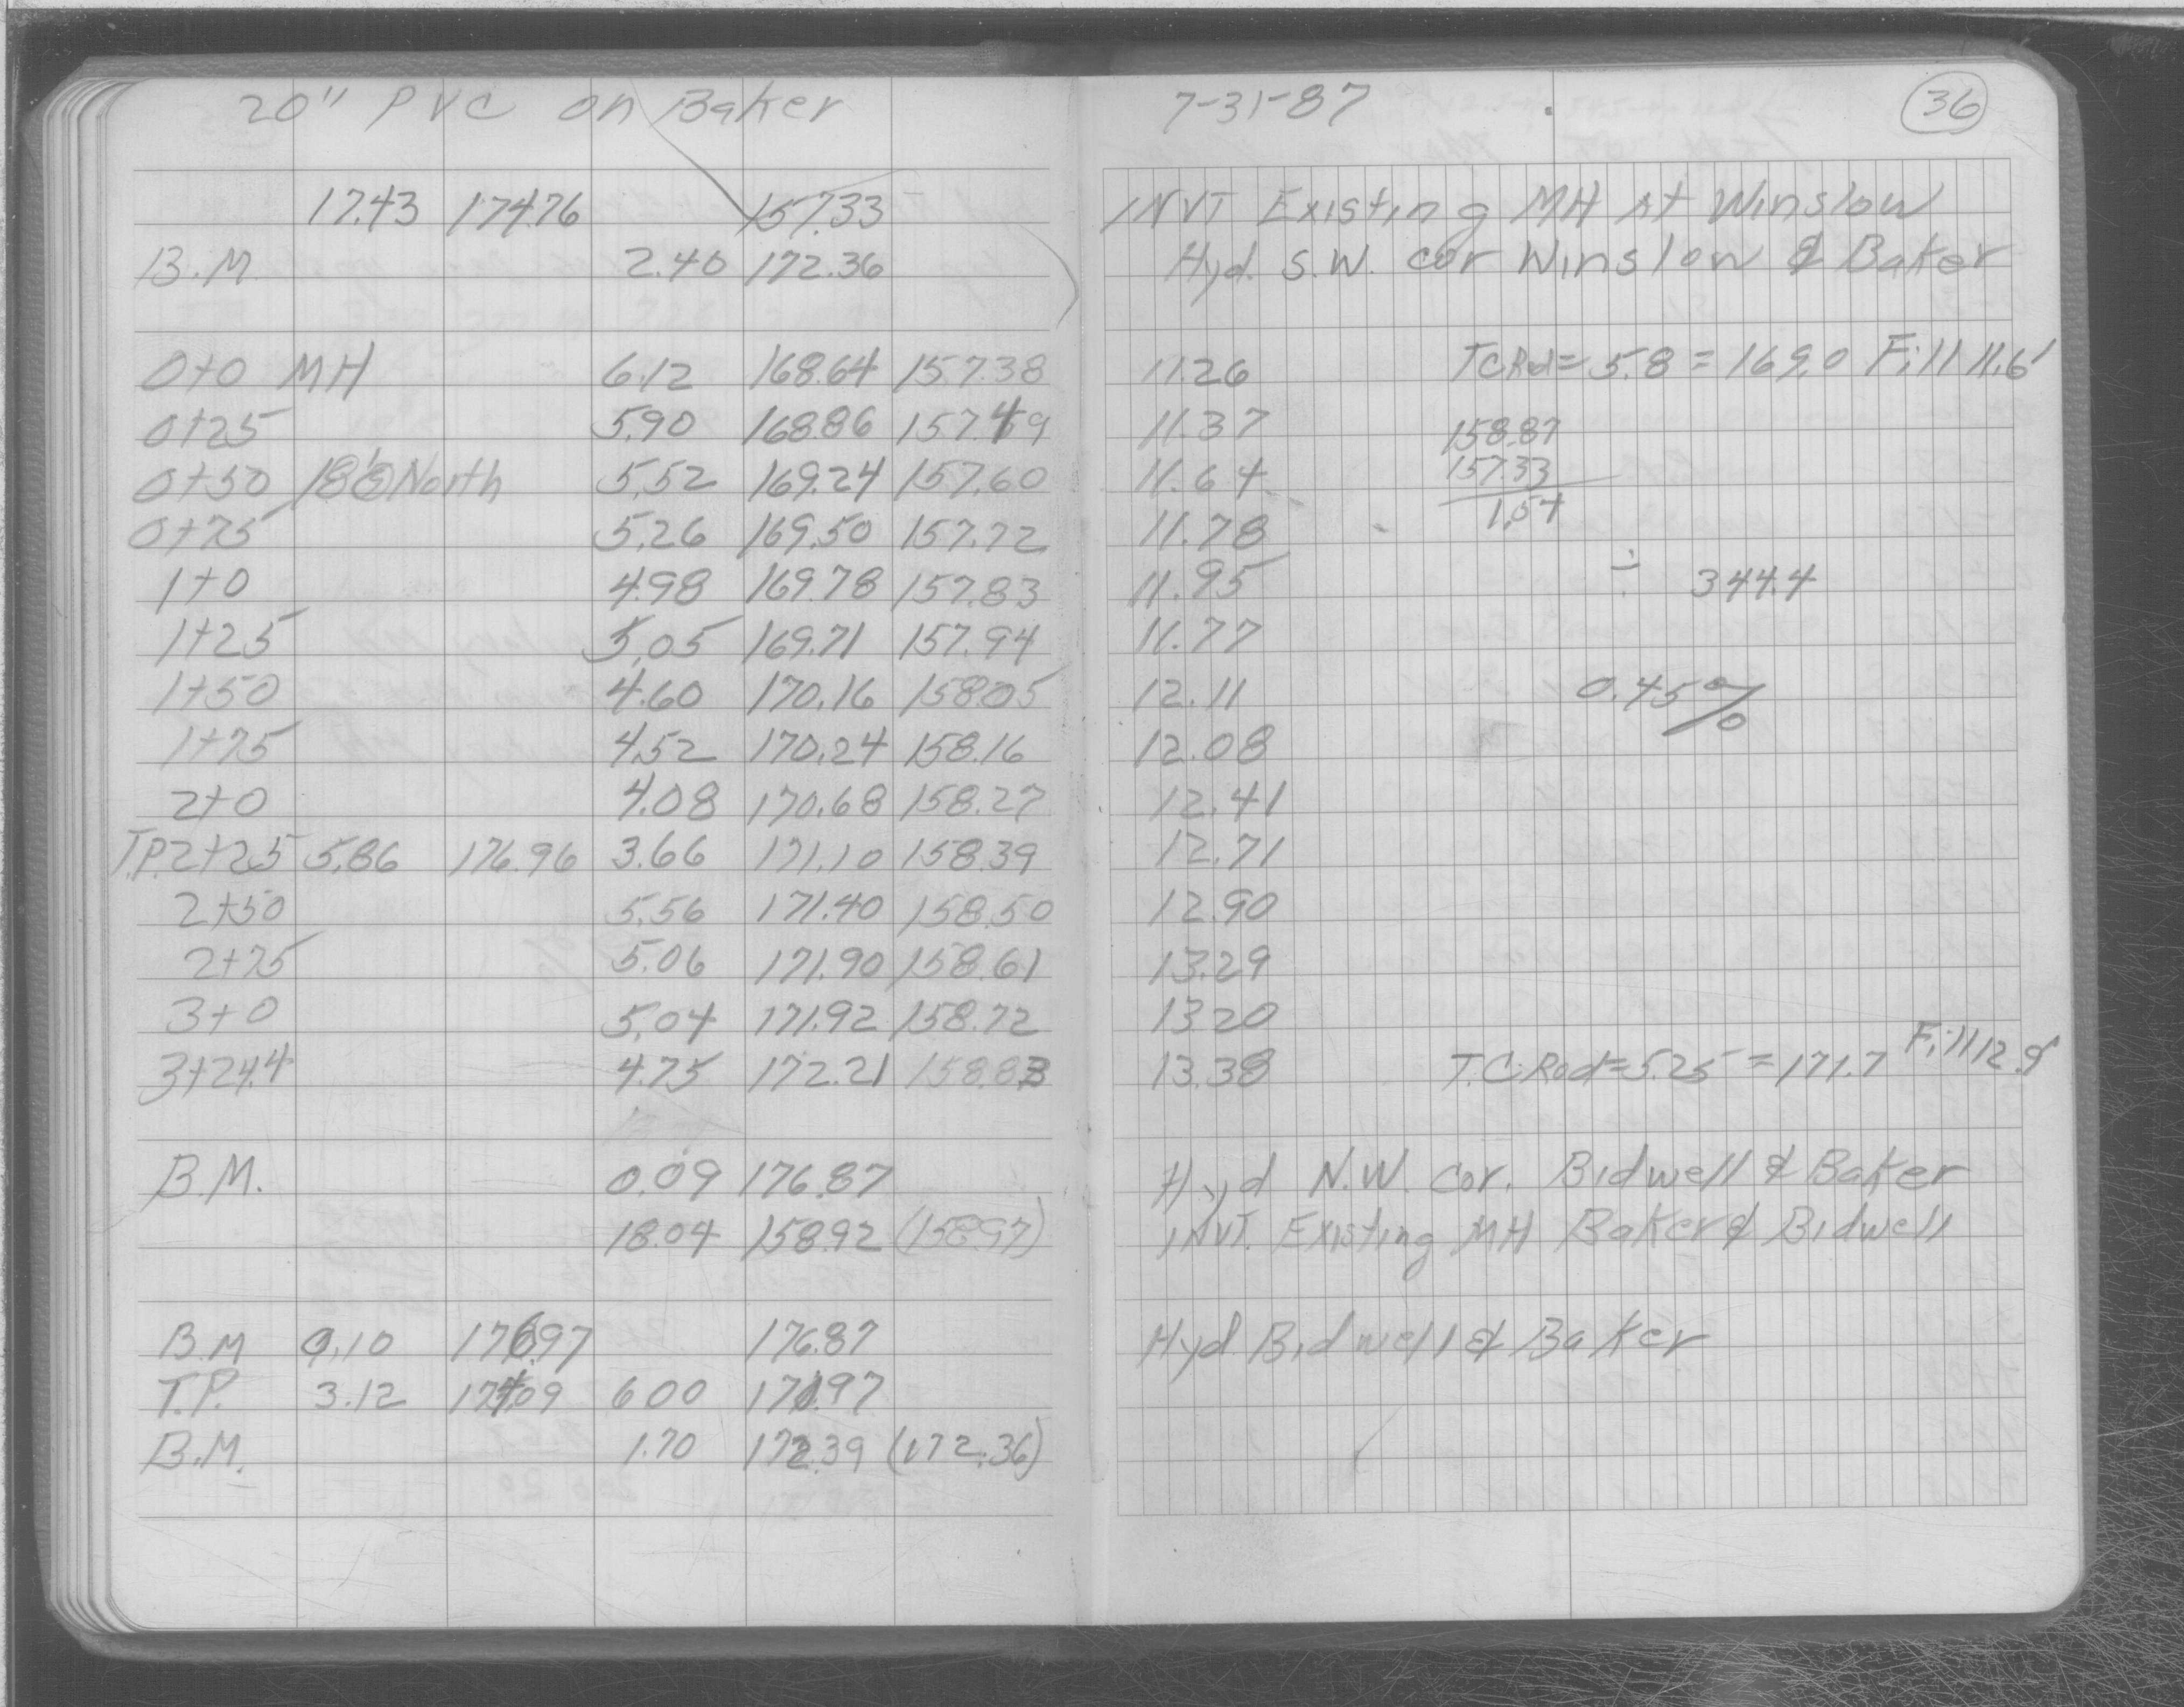 20" PVC on Baker 7-31-87 36
17.43 174.76 157.33 INVT Existing MH At Winslow
B.M. 2.40 172.36 Hyd. S.W. cor Winslow & Baker
0+0 MH 6.12 168.64 157.38 11.26 TCRd= 5.8 = 169.0 Fill 11.6'
0+25 5.90 168.86 157.49 11.37 158.87
0+50 18' North 5.52 169.24 157.60 11.64 157.33
0+75 5.26 169.50 157.72 11.78 1.54
1+0 4.98 169.78 157.83 11.95 ÷ 344.4
1+25 5.05 169.71 157.94 11.77
1+50 4.60 170.16 158.05 12.11 0.45%
1+75 4.52 170.24 158.16 12.08
2+0 4.08 170.68 158.27 12.41
T.P. 2+25 5.86 176.96 3.66 171.10 158.39 12.71
2+50 5.56 171.40 158.50 12.90
2+75 5.06 171.90 158.61 13.29
3+0 5.04 171.92 158.72 13.20
3+24.4 4.75 172.21 158.83 13.38 T.C. Rod=5.25 = 171.7 Fill 12.9'
B.M. 0.09 176.87 Hyd N.W. cor. Bidwell & Baker
18.04 158.92 (158.97) INVT. Existing MH Baker & Bidwell
B.M 0.10 176.97 176.87 Hyd. Bidwell & Baker
T.P. 3.12 174.09 6.00 170.97
B.M. 1.70 172.39 (172.36)